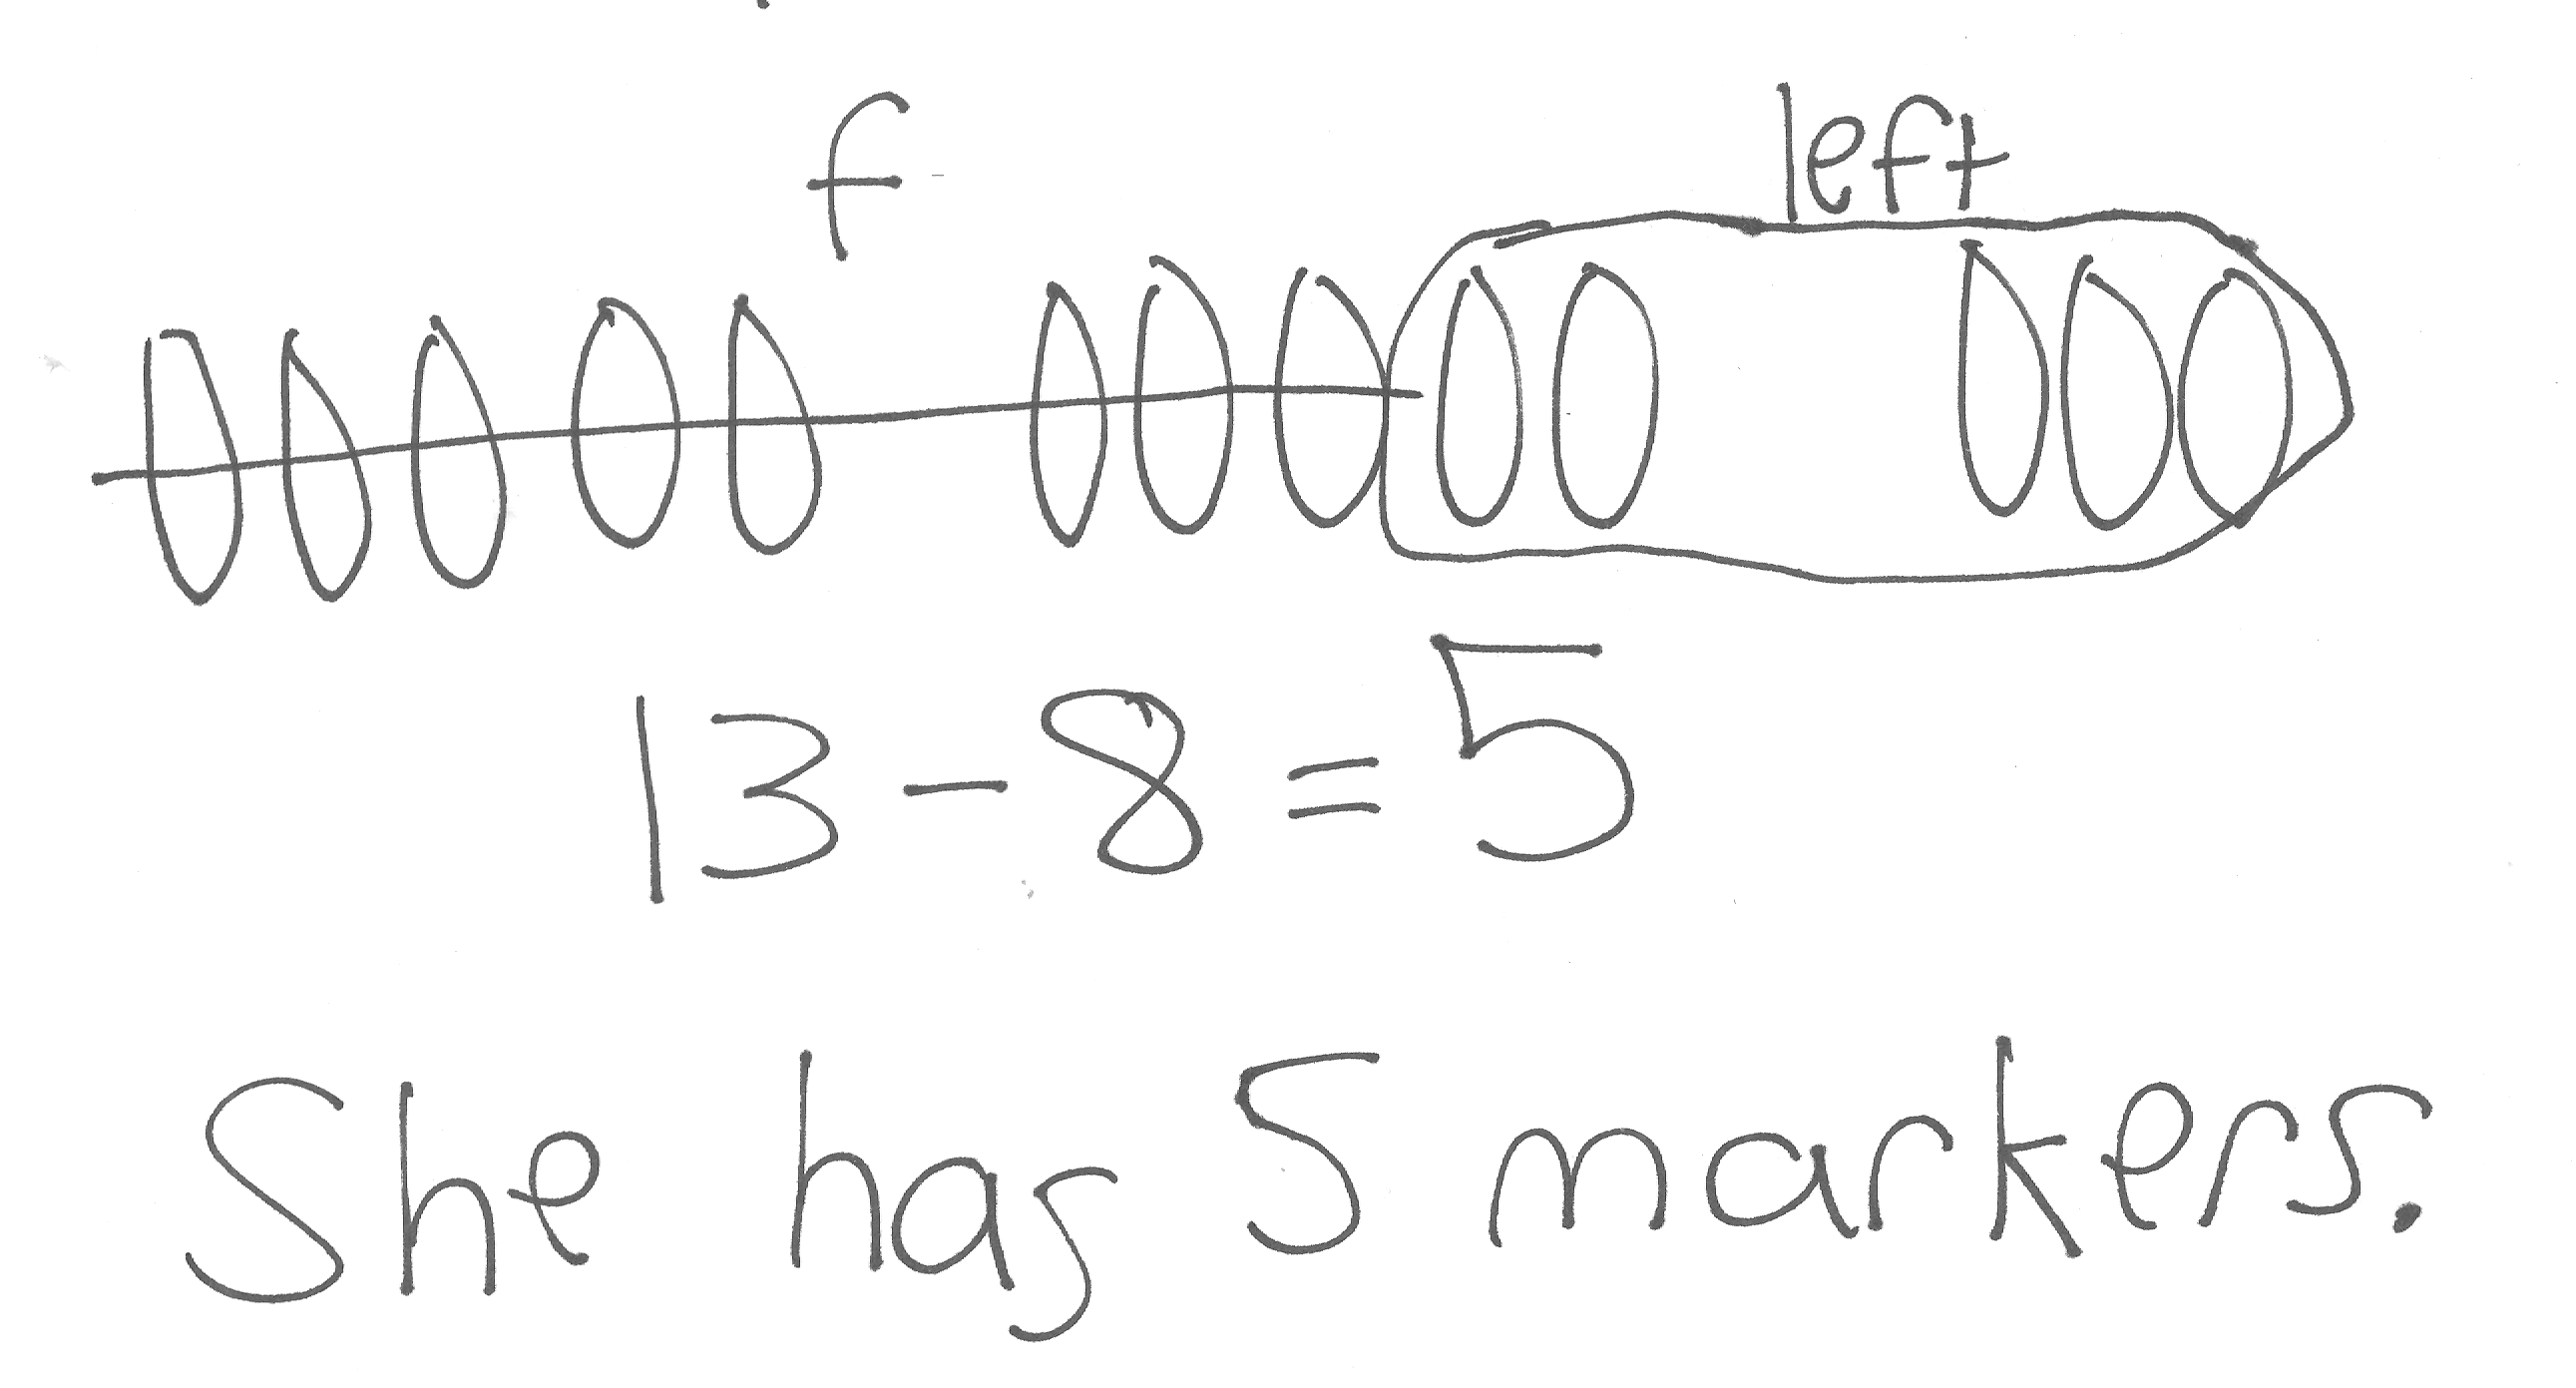 f left
13 - 8 = 5
She has 5 markers.